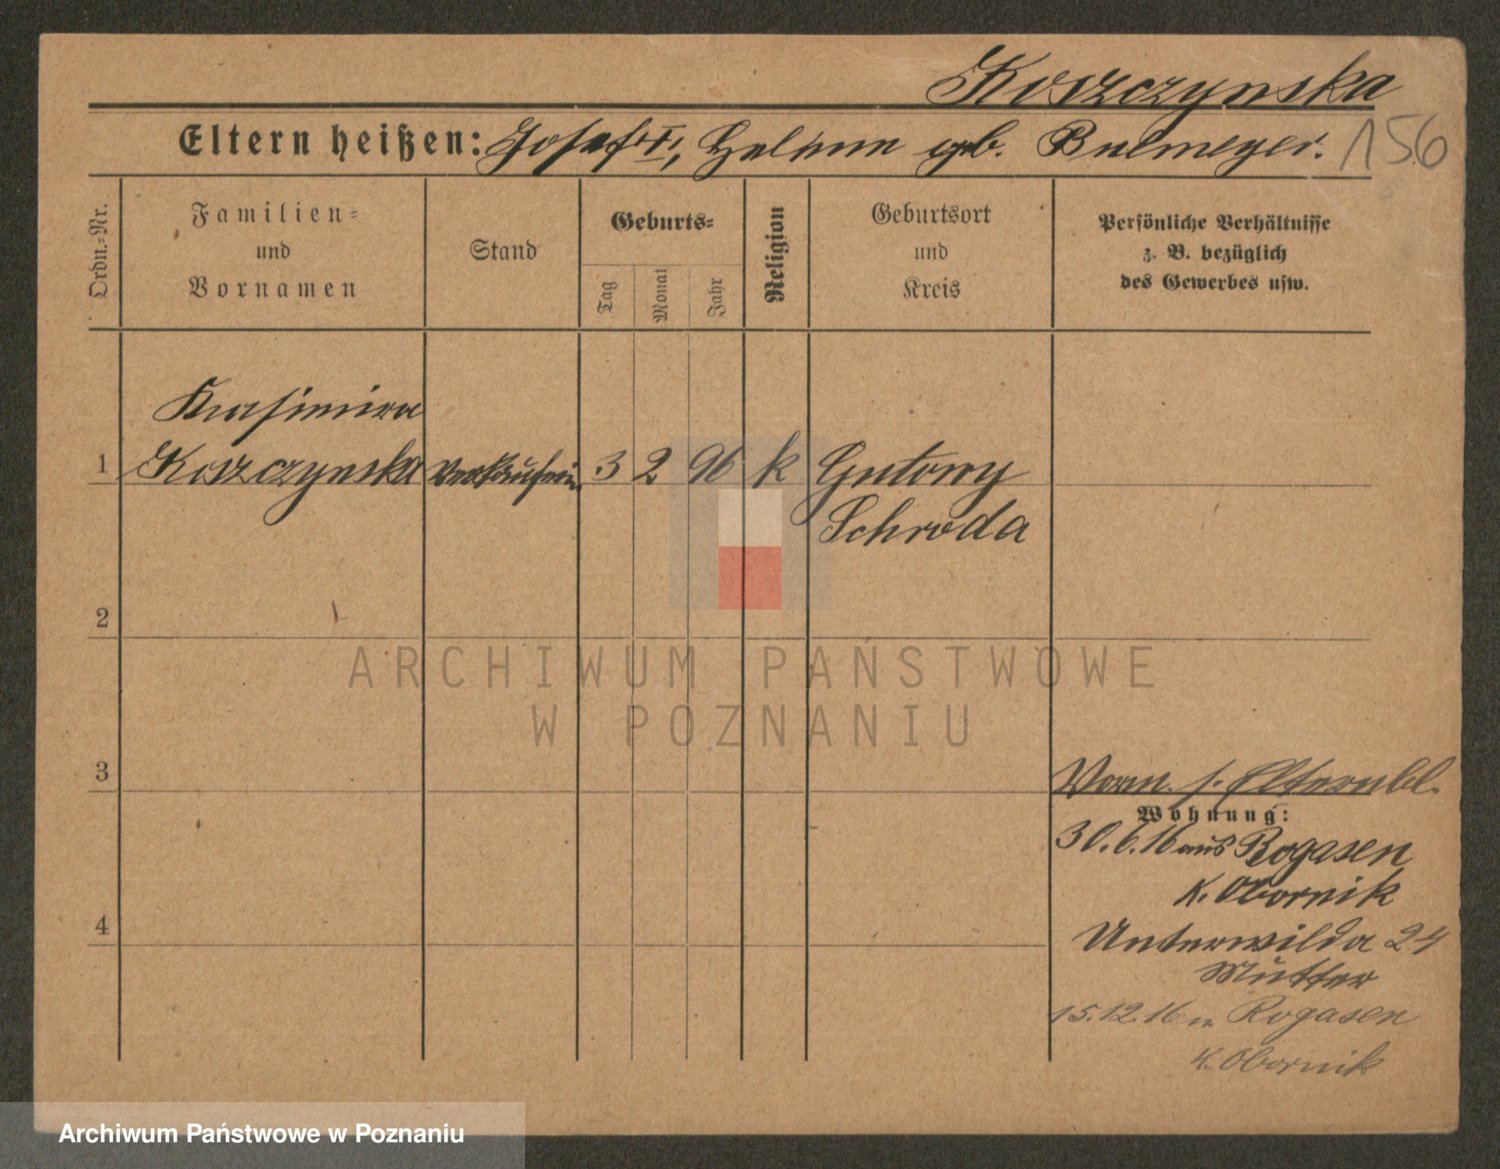 Koszczynska
Eltern heißen: Josef †, Helene geb. Bulmeyer.
156
Ordn.-Nr.
Familien-
und
Vornamen
Stand
Geburts-
Tag
Monat
Jahr
Religion
Geburtsort
und
Kreis
Persönliche Verhältnisse
z. B. bezüglich
des Gewerbes usw.
Kasimira
1 Koszczynska Verkäuferin 3 2 96 k Gutowy
Schroda
2
3
Vorm. s. Elternbl.
Wohnung:
30.6.16 aus Rogasen
K. Obornik
4
Unterwilda 24
Mutter
15.12.16 n. Rogasen
K. Obornik
ARCHIWUM PAŃSTWOWE
W POZNANIU
Archiwum Państwowe w Poznaniu